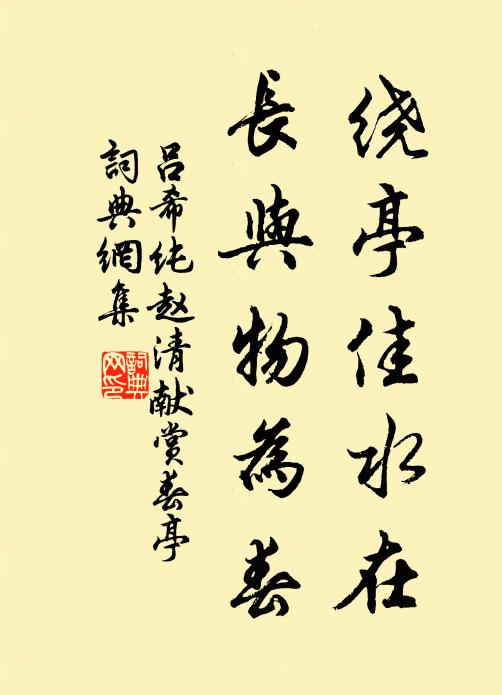 绕亭佳水在
長與物為春
吕希纯赵清献赏春亭
詞典網集
詞典网印